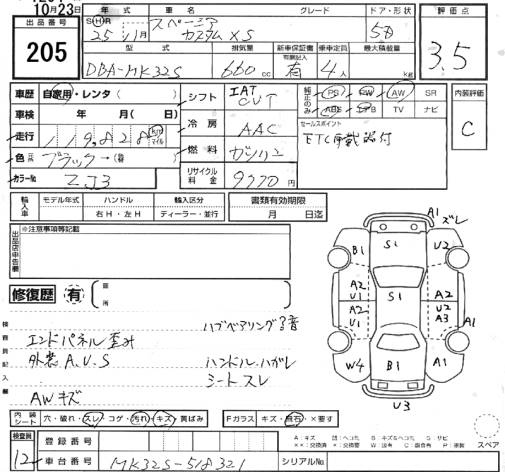 10月23日
出品番号
205
年 式 車 名 グレード ドア・形状
SHR 25年11月 スペーシア カスタム XS 5D
型 式 排気量 新車保証書 乗車定員 最大積載量
DBA-MK32S 660cc 有 4人 kg
評価点
3.5
車歴 自家用・レンタ( )
車検 年 月( 日)
走行 119,828 km マイル
色 ブラック→
カラーNo ZJ3
シフト IAT CVT
冷房 AAC
燃料 ガソリン
リサイクル料金 9770円
純正のみ PS PW AW SR
ABS TV ナビ
セールスポイント
ETC 付
内装評価
C
輸入車 モデル年式 ハンドル 輸入区分 書類有効期限
右H・左H ディーラー・並行 月 日迄
出品店申告欄
※注意事項等記載
修復歴 有 箇所
検査員記入欄
ハブベアリング音
エンドパネル歪み
外装 A.U.S
ハンドル.ハガレ
シートスレ
AWキズ
A1 ズレ
B1 S1 U2
A2 U1 S1 A2 U2
A2 U1 A3 A1
W4 B1 A1
U3
内装シート 穴・破れ・スレ・コゲ・汚れ・キズ・黄ばみ Fガラス キズ・飛石・×要す
検査員 12
登録番号
車台番号 MK32S-518321 シリアルNo.
スペア